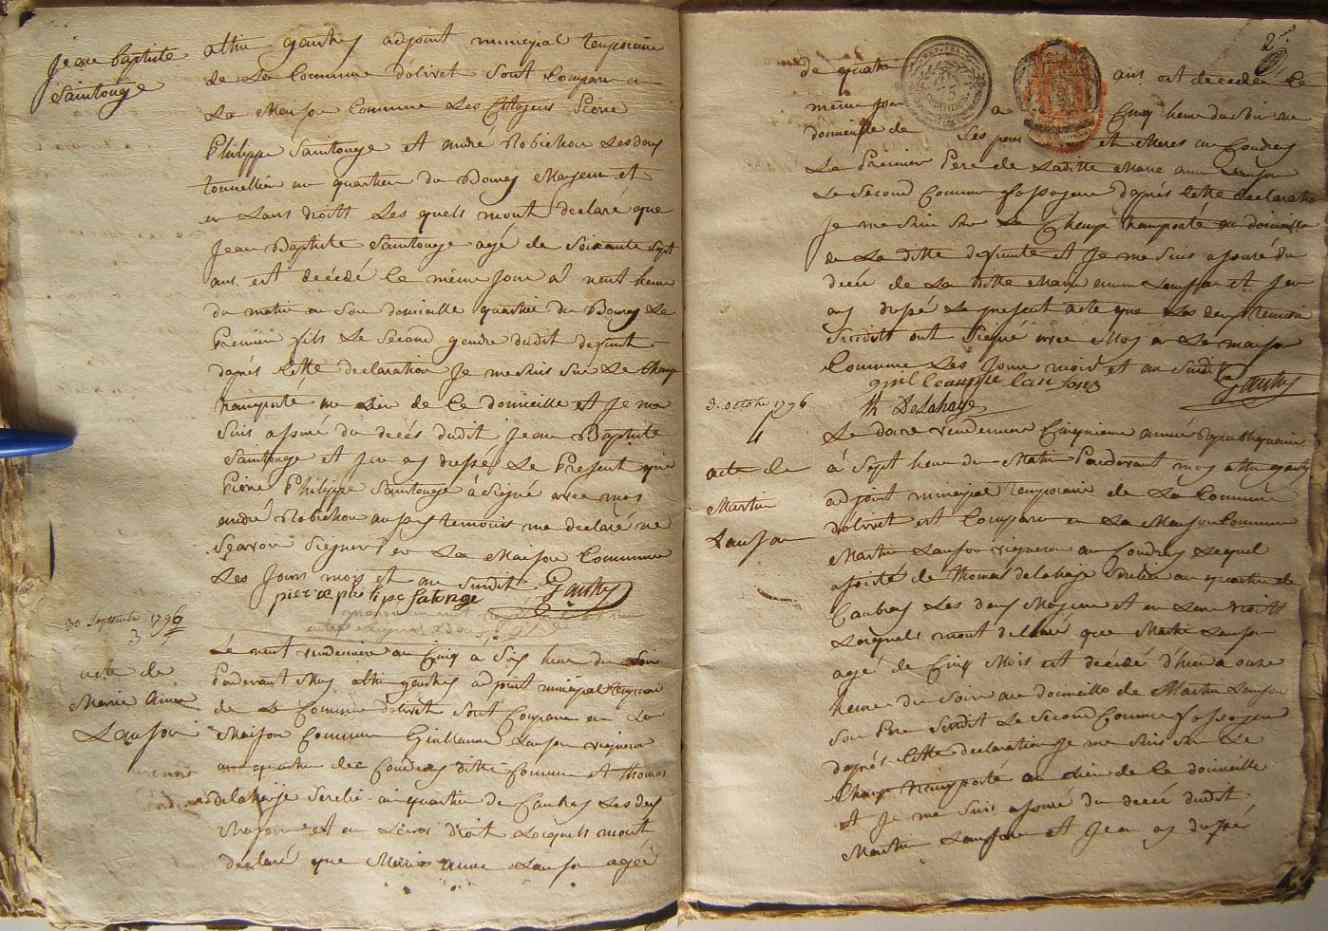 Jean baptiste
Saintonge
adjoint municipal temporaire
de La Commune d'olivet Sont Comparu a
La Maison Commune Les Citoyens Piere
Philippe Saintonge et andré Robichon Les deux
tonnellier au quartier du Bourg Majeur et
en Leurs droits Les quels mont declaré que
Jean Baptiste Saintonge agé de Soixante Sept
ans est decedé Le même Jour a neuf heure
du matin en Son domicille quartier du Bourg Le
Premier fils Le Second gendre dudit defunt
daprés Cette declaration Je me Suis Sur Le Champ
transporté au Lieu de Ce domicille et Je me
Suis assuré du decés dudit Jean Baptiste
Saintonge et Jen ay dressé Le Present que
Piere Philippe Saintonge à Signé avec moy
andré Robichon aussy temoins ma declaré ne
Savoir Signer en La Maison Commune
Les Jours mois et an Susdit
pierre philipe Satonge
30 Septembre 1796
3
acte de
Marie Anne
Lanson
Le neuf vendemiere an Cinq à Six heure du Soir
Pardevant Moy adjoint municipal
de La Commune d'olivet Sont Comparu en La
Maison Commune Guillaume Lanson vigneron
au quartier des Coudray ditte Commune et thomas
delahaye au quartier de Les deux
Majeure et en Leurs droit Lesquels mont
declaré que Marie anne Lanson agée
2
de quatre ans est decedée Le
même Jour a Cinq heure du Soir au
domicille de Ses pere et Meres au Coudray
Le Premier Pere de Laditte Marie anne Lanson
Le Second Comme fossoyeur d'aprés Cette declaration
Je me Suis Sur Le Champ transporté au domicille
de La ditte defunte et Je me Suis assuré du
decés de La ditte Marie anne Lanson et Jen
ay dressé Le present acte que Les deux temoins
Susdits ont Signé avec Moy en La maison
Commune Les Jours mois et an Susdit
th DeLahaye
3 octobre 1796
4
acte de
Martin
Lanson
Le douze vendemiere Cinquieme année Republiquaine
à Sept heure du Matin Pardevant moy
adjoint municipal temporaire de La Commune
d'olivet est Comparu en La Maison Commune
Martin Lanson vigneron au Coudray Lequel
assisté de Thomas delahaye au quartier de
Les deux Majeure et en Leur droits
Lesquels mont declaré que Martin Lanson
agé de Cinq Mois est decedé d'hier a onze
heure du Soir au domicille de Martin Lanson
Son Pere Susdit Le Second Comme fossoyeur
daprés Cette declaration Je me Suis Sur Le
Champ transporté au Lieu de Ce domicille
et Je me Suis assuré du decé dudit
Martin Lanson et Jean ay dressé